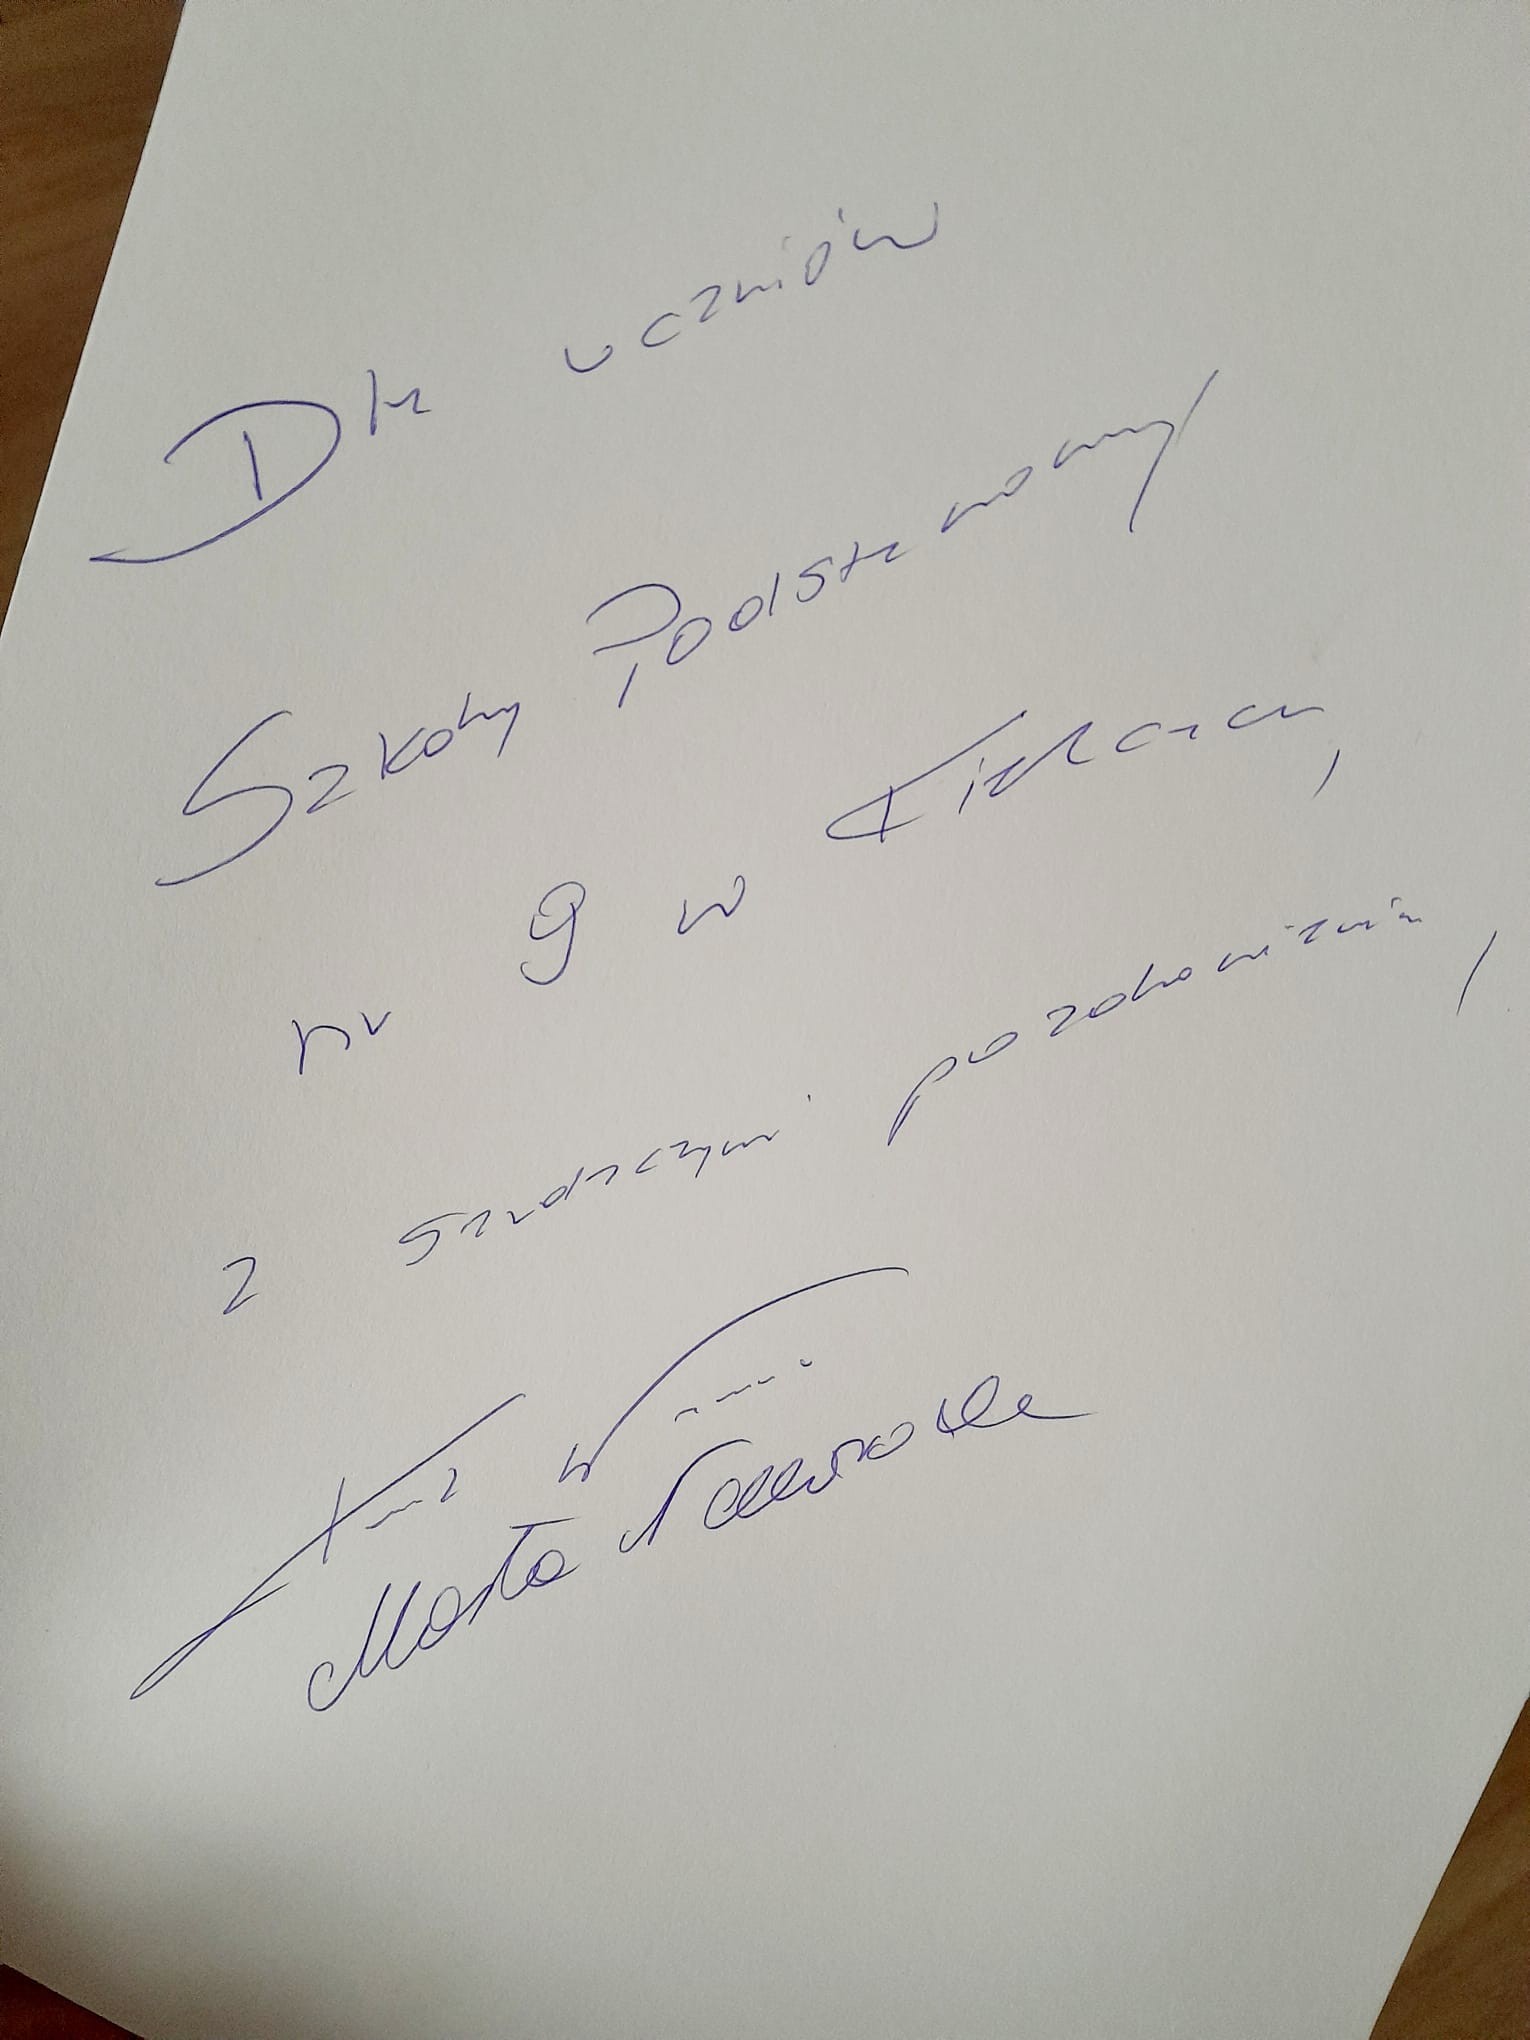 Dla uczniów
Szkoły Podstawowej
nr 9 w Kielcach,
z serdecznymi pozdrowieniami,
Marta Nawrocka